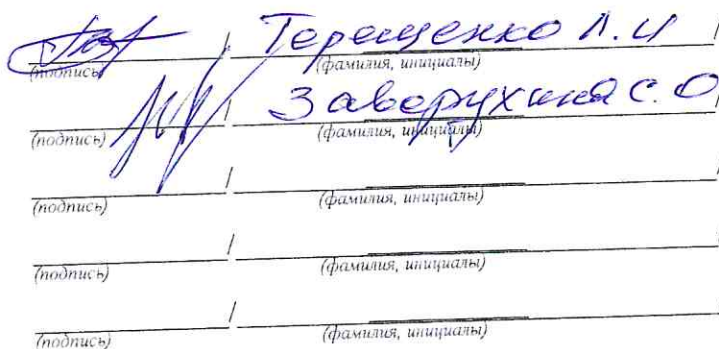 / Терещенко Л.И /
(подпись) (фамилия, инициалы)
/ Заверухина С.О /
(подпись) (фамилия, инициалы)
/ /
(подпись) (фамилия, инициалы)
/ /
(подпись) (фамилия, инициалы)
/ /
(подпись) (фамилия, инициалы)